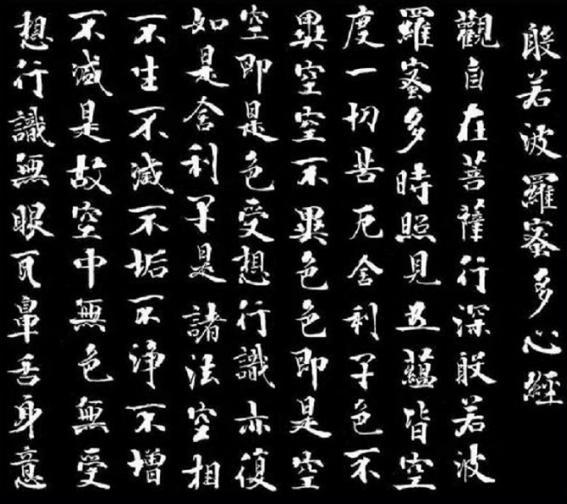 般若波羅蜜多心經
觀自在菩薩行深般若波
羅蜜多時照見五蘊皆空
度一切苦厄舍利子色不
異空空不異色色即是空
空即是色受想行識亦復
如是舍利子是諸法空相
不生不滅不垢不淨不增
不減是故空中無色無受
想行識無眼耳鼻舌身意